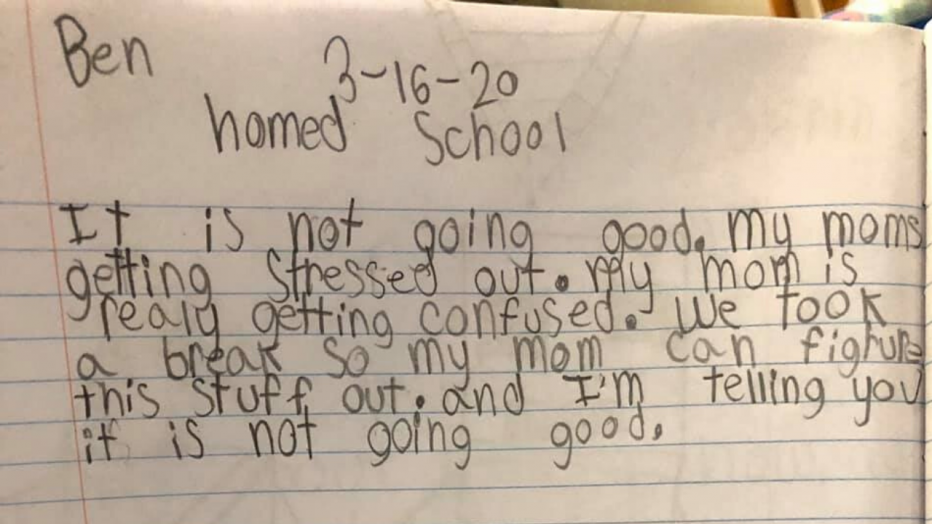 Ben
3-16-20
homed School
It is not going good. my moms
getting stressed out. my mom is
realy getting confused. we took
a break so my mom can figture
this stuff out. and I'm telling you
it is not going good.